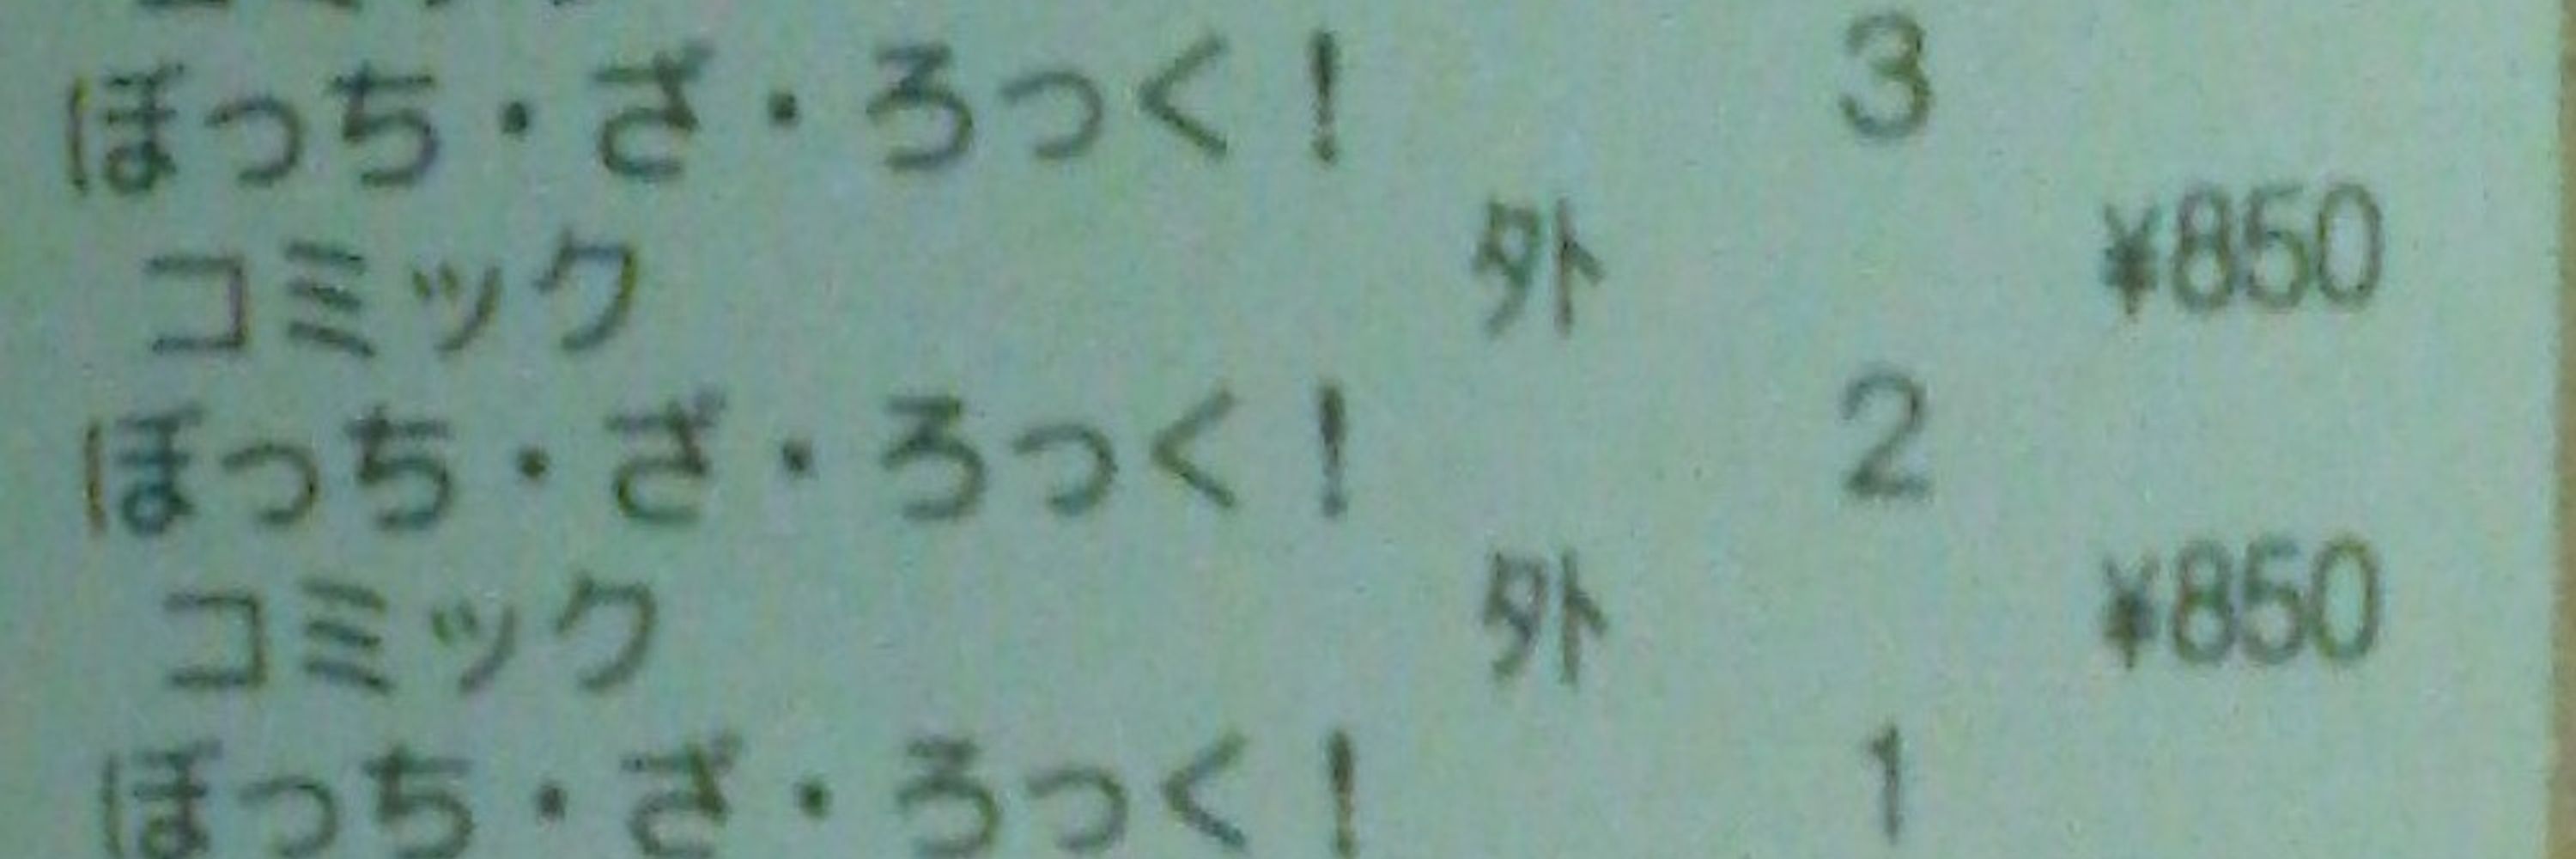 ぼっち・ざ・ろっく！ 3
コミック 外 ¥850
ぼっち・ざ・ろっく！ 2
コミック 外 ¥850
ぼっち・ざ・ろっく！ 1